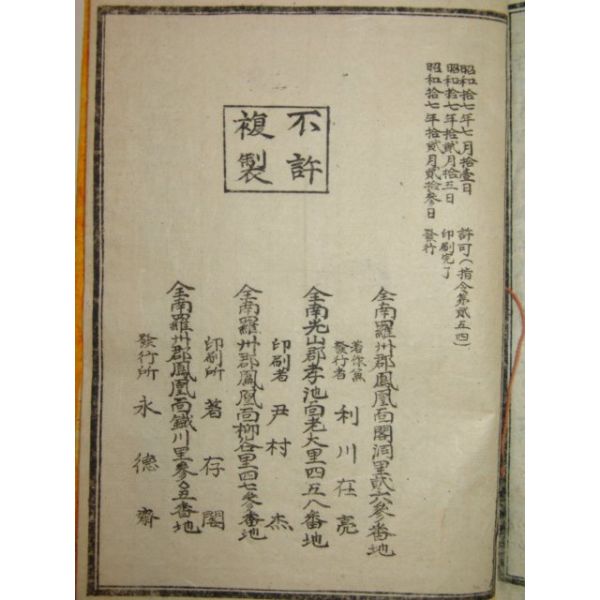 昭和拾七年七月拾壹日 許可(指令第貳五四)
昭和拾七年拾貳月拾五日 印刷完了
昭和拾七年拾貳月貳拾參日 發行
不許
複製
全南羅州郡鳳凰面閣洞里貳六參番地
著作兼發行者 利川在亮
全南光山郡孝池面老大里四五八番地
印刷者 尹村杰
全南羅州郡鳳凰面柳谷里四七參番地
印刷所 著存閣
全南羅州郡鳳凰面鐵川里參〇五番地
發行所 永德齋